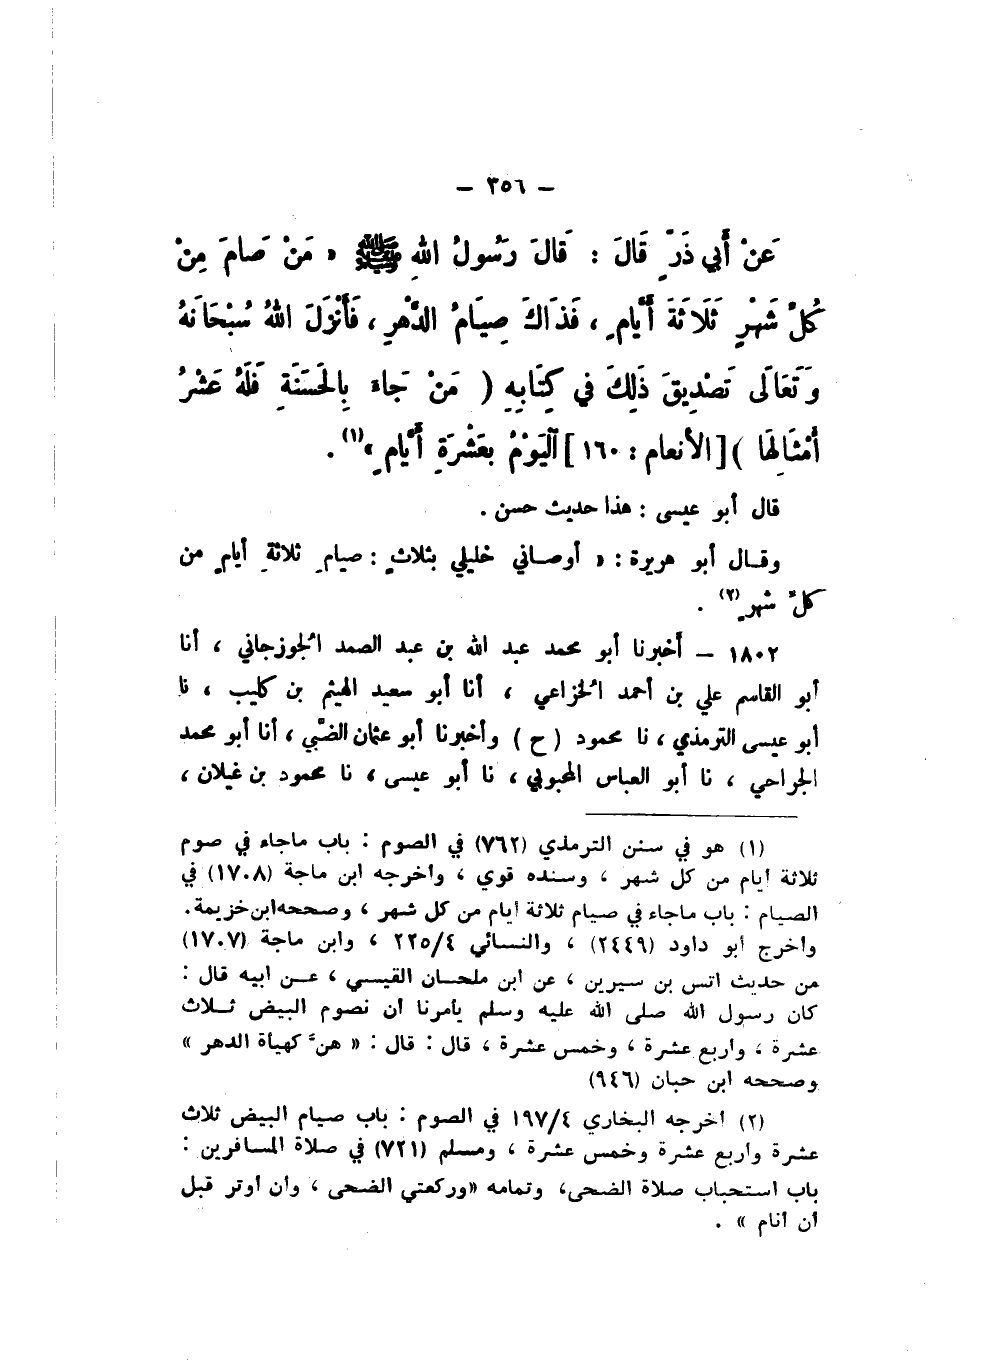 — ٣٥٦ —
عَنْ أَبِي ذَرٍّ قَالَ : قَالَ رَسُولُ اللهِ ﷺ « مَنْ صَامَ مِنْ
كُلِّ شَهْرٍ ثَلَاثَةَ أَيَّامٍ ، فَذَاكَ صِيَامُ الدَّهْرِ ، فَأَنْزَلَ اللهُ سُبْحَانَهُ
وَتَعَالَى تَصْدِيقَ ذَلِكَ في كِتَابِهِ ( مَنْ جَاءَ بِالحَسَنَةِ فَلَهُ عَشْرُ
أَمْثَالِهَا ) [ الأنعام : ١٦٠ ] آلْيَوْمُ بِعَشْرَةِ أَيَّامٍ »(١) .
قال أبو عيسى : هذا حديث حسن .
وقـال أبو هريرة : « أوصـاني خليلي بثلاثٍ : صيامِ ثلاثةِ أيامٍ من
كلِّ شهرٍ (٢) .
١٨٠٢ — أخبرنا أبو محمد عبد الله بن عبد الصمد الجوزجاني ، أنا
أبو القاسم علي بن أحمد الخزاعي ، أنا أبو سعيد الهيثم بن كليب ، نا
أبو عيسى الترمذي ، نا محمود ( ح ) وأخبرنا أبو عثمان الضبّي ، أنا أبو محمد
الجراحي ، نا أبو العباس المحبوبي ، نا أبو عيسى ، نا محمود بن غيلان ،
(١) هو في سنن الترمذي (٧٦٢) في الصوم : باب ماجاء في صوم
ثلاثة أيام من كل شهر ، وسنده قوي ، وأخرجه ابن ماجة (١٧٠٨) في
الصيام : باب ماجاء في صيام ثلاثة أيام من كل شهر ، وصححه ابن خزيمة .
وأخرج أبو داود (٢٤٤٩) ، والنسائي ٢٢٥/٤ ، وابن ماجة (١٧٠٧)
من حديث أنس بن سيرين ، عن ابن ملحـان القيسي ، عـن أبيه قال :
كان رسول الله صلى الله عليه وسلم يأمرنا أن نصوم البيض ثـلاث
عشرة ، وأربع عشرة ، وخمس عشرة ، قال : قال : « هنَّ كهيأة الدهر »
وصححه ابن حبان (٩٤٦)
(٢) أخرجه البخاري ١٩٧/٤ في الصوم : باب صيام البيض ثلاث
عشرة وأربع عشرة وخمس عشرة ، ومسلم (٧٢١) في صلاة المسافرين :
باب استحباب صلاة الضحى، وتمامه «وركعتي الضحى ، وأن أوتر قبل
أن أنام » .